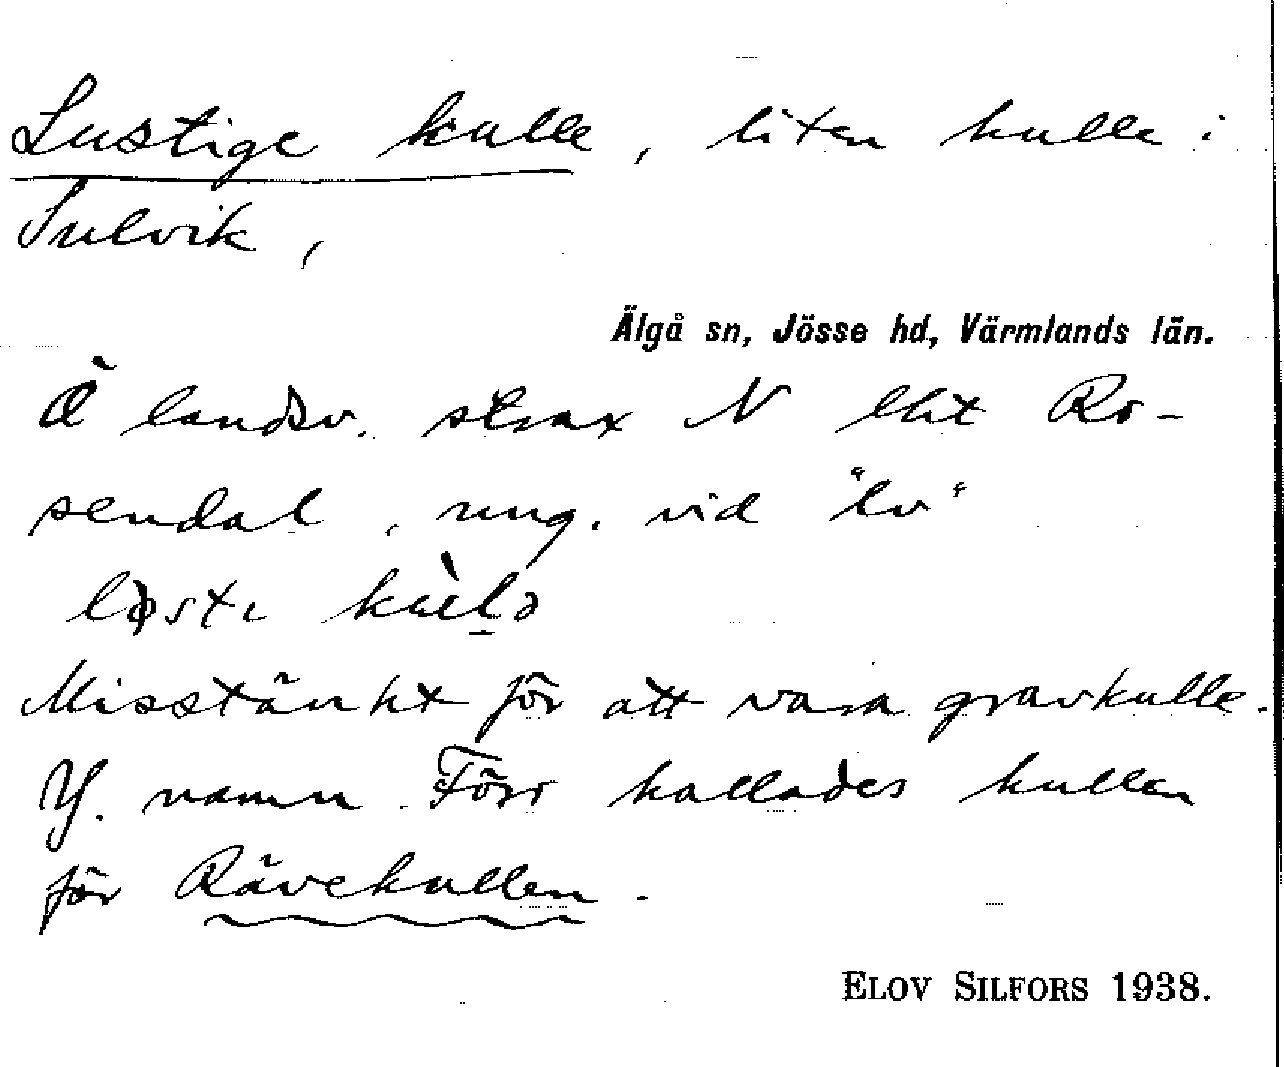 Lustige kulle, liten kulle i
Sulvik,
Älgå sn, Jösse hd, Värmlands län.
Ö landsv. strax N Ro-
sendal, ung. vid "lv"
Misstänkt för att vara gravkulle.
Y. namn. Förr kallades kullen
för Rävekullen.
ELOV SILFORS 1938.